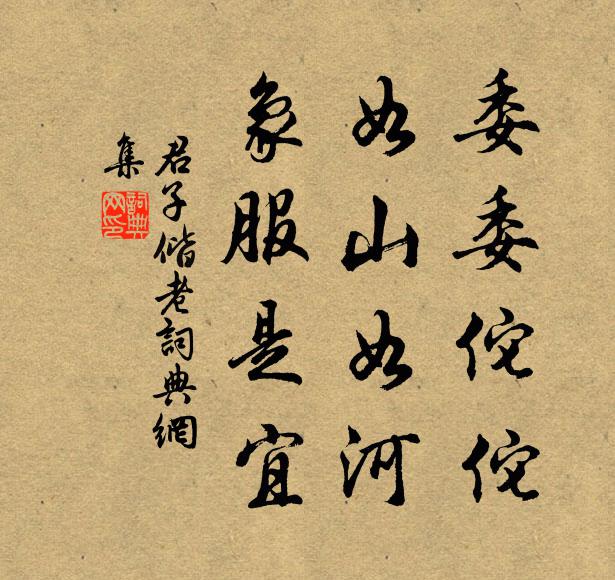 委委佗佗
如山如河
象服是宜
君子偕老詞典網
集
詞典網印